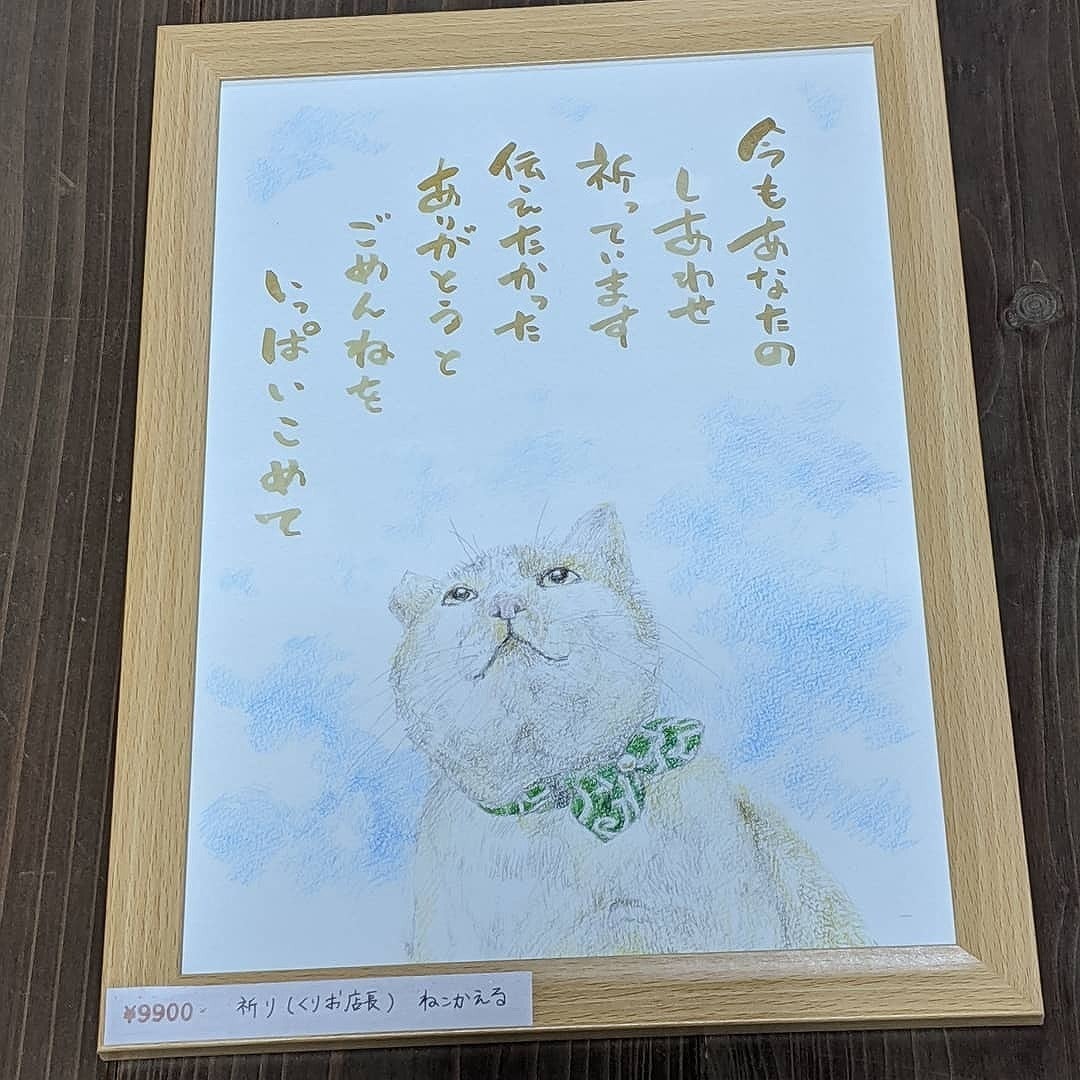 今もあなたの
しあわせ
祈っています
伝えたかった
ありがとうと
ごめんねを
いっぱいこめて
¥9900- 祈り(くりお店長) ねこかえる